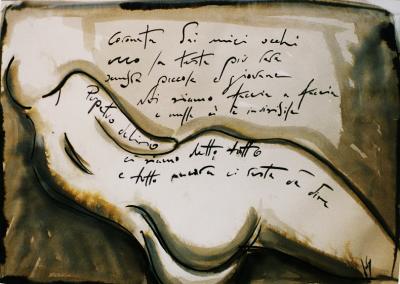 Coronata dai miei occhi
la testa più
sembra piccola e giovane
Noi siamo faccia a faccia
e nulla ci è invisibile
Perpetuo delirio
ci siamo detto tutto
e tutto ancora ci resta da dire